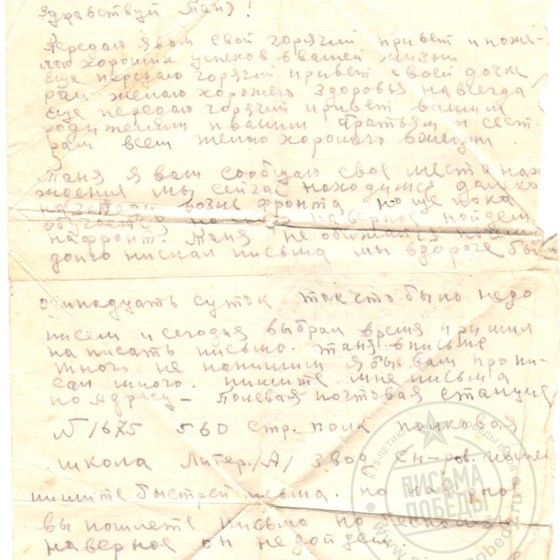 Здравствуй Таня!
Передаю я вам свой горячий привет и поже-
лаю хороших успехов в вашей жизни
еще передаю горячий привет своей дочке
раи желаю хорошего здоровья навсегда
еще передаю горячий привет вашим
родителям и вашим братьям и сест
рам всем желаю хорошего
Таня я вам сообщаю свое место нах
ждения мы сейчас находимся далеко
возле фронта но еще пока
наверное пойдем
на фронт. Таня не обижайся
долго писал письма мы вдороге бы
динадцать суток так что было недо
писем и сегодня выбрал время и решил
написать письмо. Таня в письме
много не напишиш я бы вам пропи-
сал много. пишите мне письма
по адресу - Полевая почтовая станция
N 1675 560 стр. полк полковая
школа Литер /А/ 3 взо
пишите быстрей письма. но наверное
вы пошлете письмо но
наверное он не дойдет
ПИСЬМА
ПОБЕДЫ